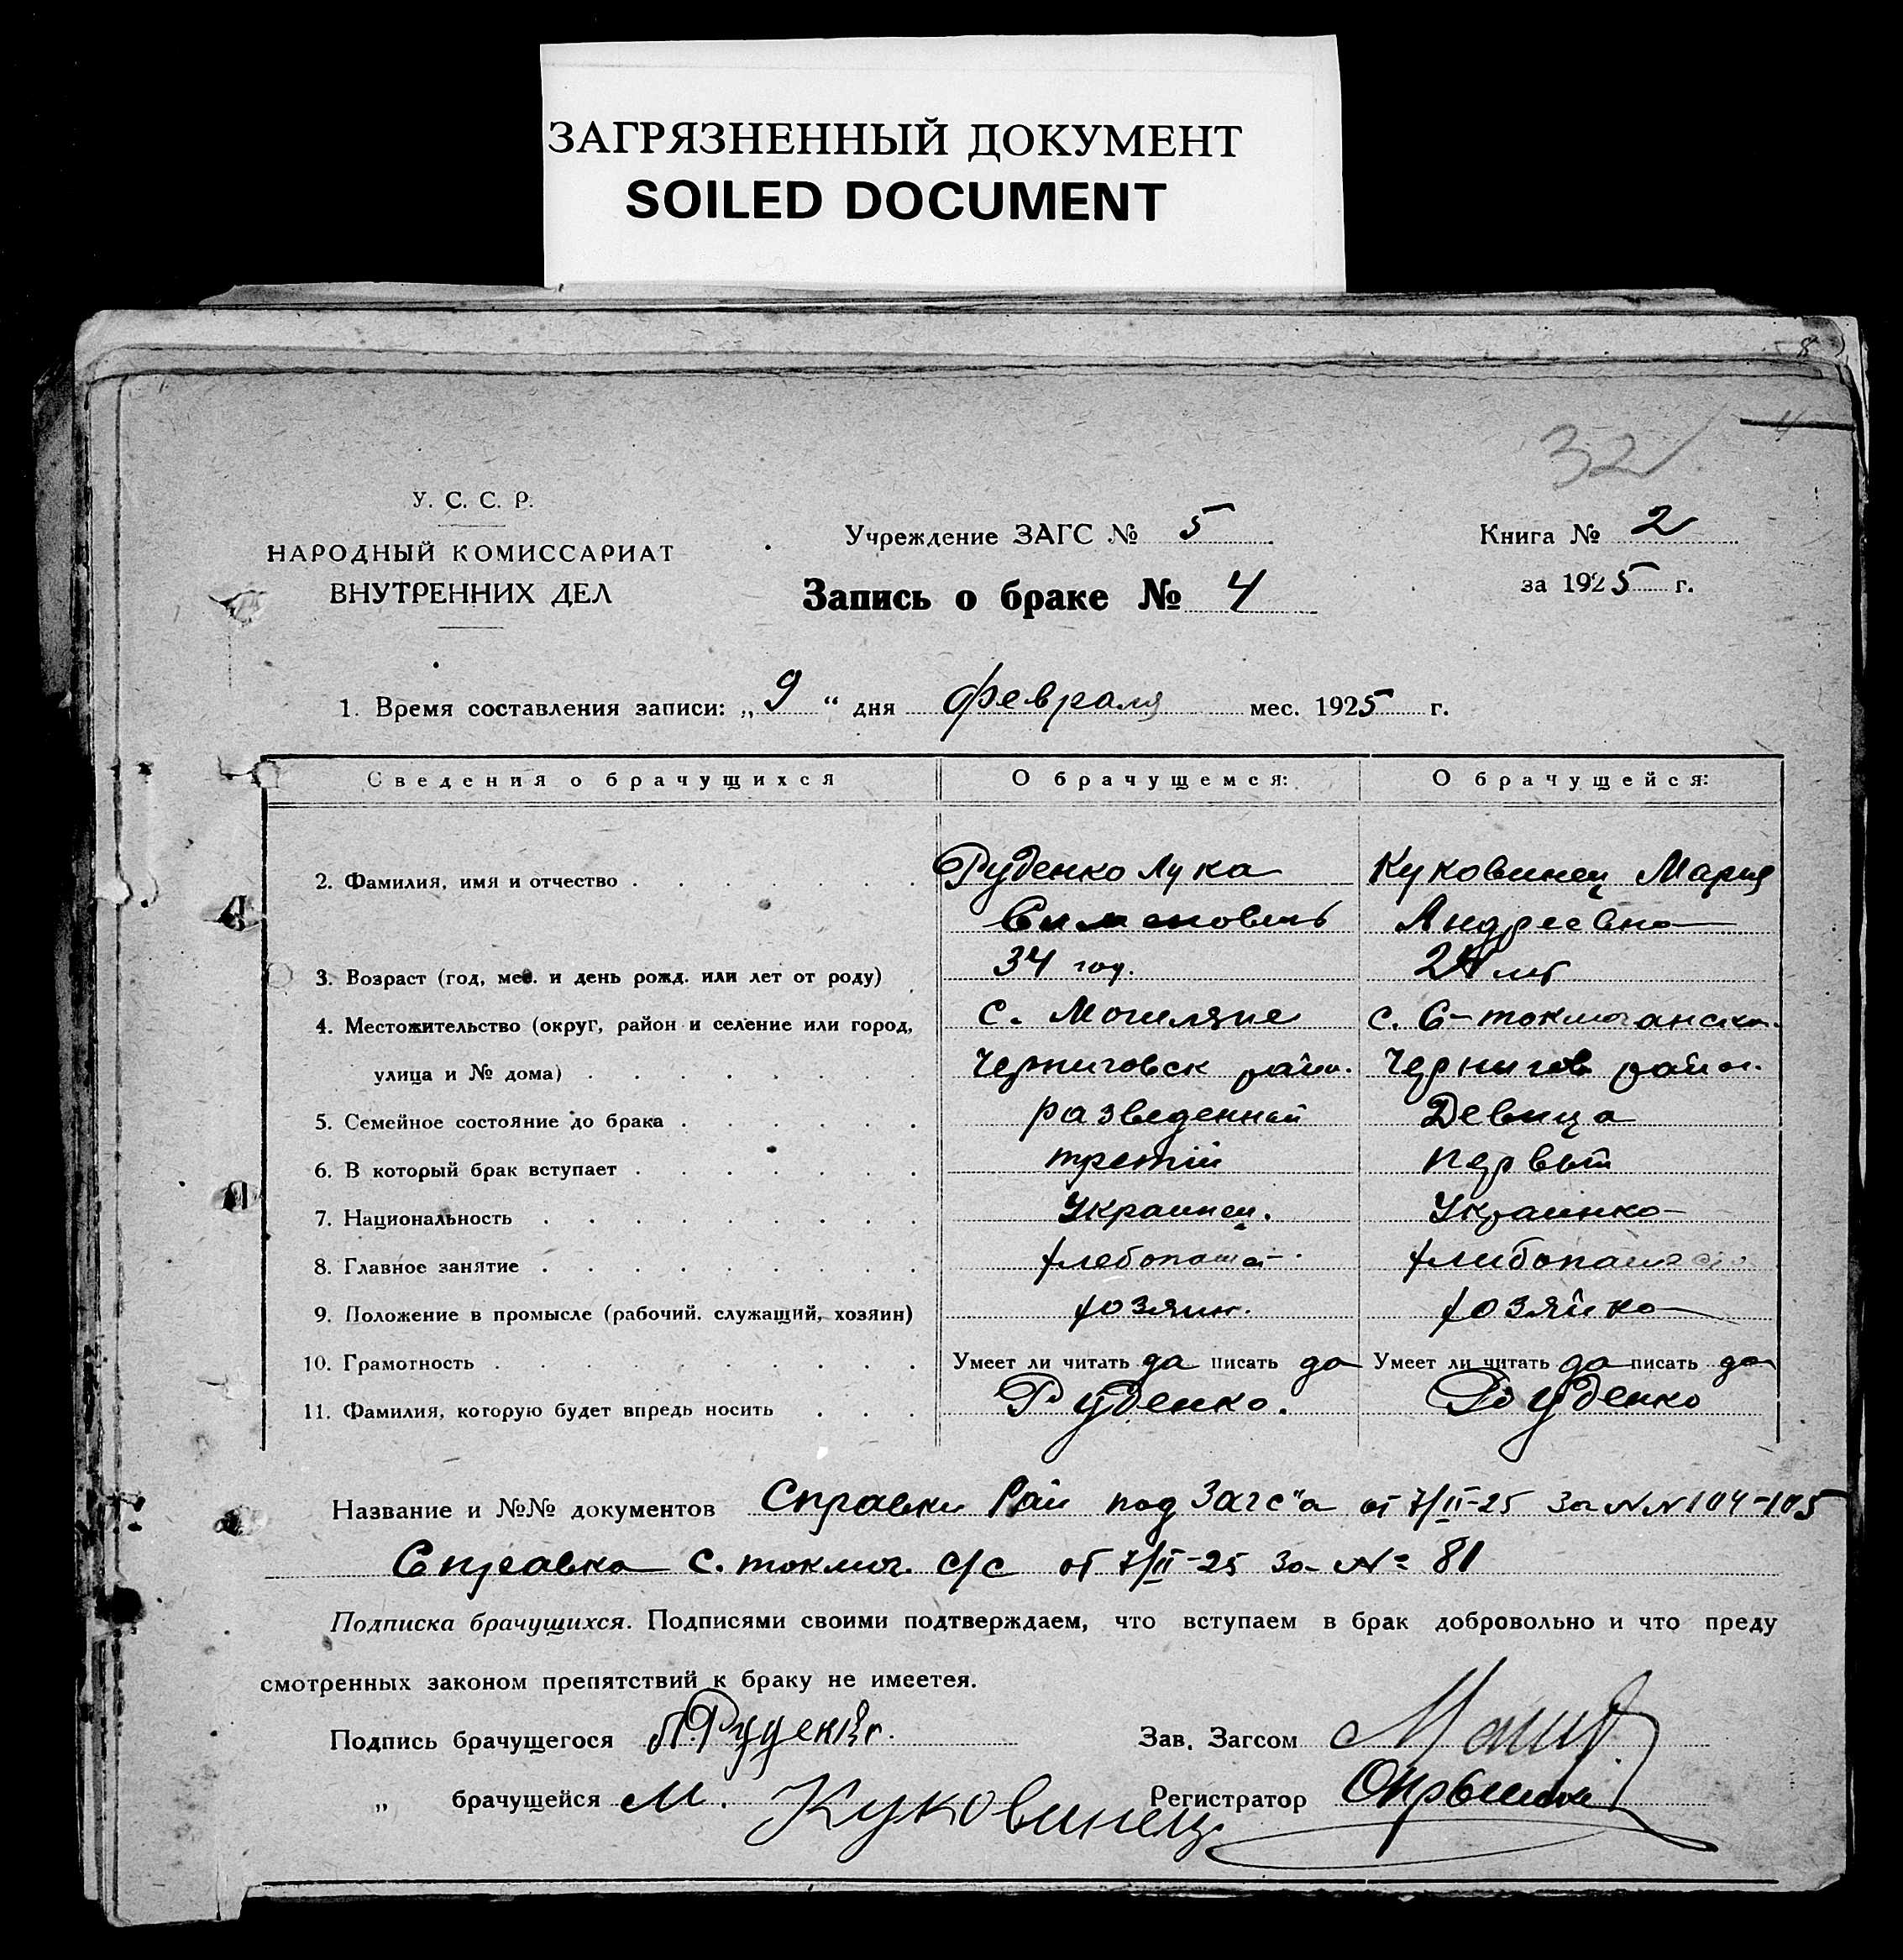 ЗАГРЯЗНЕННЫЙ ДОКУМЕНТ
SOILED DOCUMENT
8
32
У. С. С. Р.
НАРОДНЫЙ КОМИССАРИАТ
ВНУТРЕННИХ ДЕЛ
Учреждение ЗАГС № 5
Запись о браке № 4
Книга № 2
за 1925 г.
1. Время составления записи: „9“ дня февраля мес. 1925 г.
Сведения о брачущихся О брачущемся: О брачущейся:
2. Фамилия, имя и отчество Руденко Лука Куковинец Мария
Андреевна
3. Возраст (год, мес. и день рожд. или лет от роду) 34 год. 24 лет
4. Местожительство (округ, район и селение или город, с. Могиляне с.
улица и № дома) Черниговск район. Чернигов район.
5. Семейное состояние до брака разведенный Девица
6. В который брак вступает третий первый
7. Национальность Украинец. Украинка
8. Главное занятие
9. Положение в промысле (рабочий, служащий, хозяин) хозяин. хозяйка
10. Грамотность Умеет ли читать да писать да Умеет ли читать да писать да
11. Фамилия, которую будет впредь носить Руденко. Руденко
Название и №№ документов Справки Рай под Загс"а от 7/II-25 за NN 104-105
Справка с. токмач. с/с от 7/II-25 за № 81
Подписка брачущихся. Подписями своими подтверждаем, что вступаем в брак добровольно и что преду
смотренных законом препятствий к браку не имеетея.
Подпись брачущегося Л. Руденко. Зав. Загсом
„ брачущейся М. Куковинец Регистратор